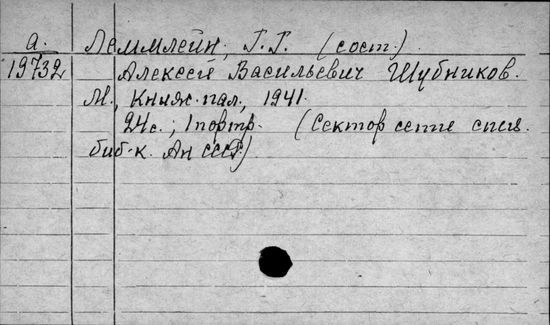 а. Леммлейн, Г.Г. (сост.)
19732 Алексей Васильевич Шубников.
М., Книж. пал., 1941.
24с.; 1 портр. (Сектор сети спец.
биб-к. Ан СССР)